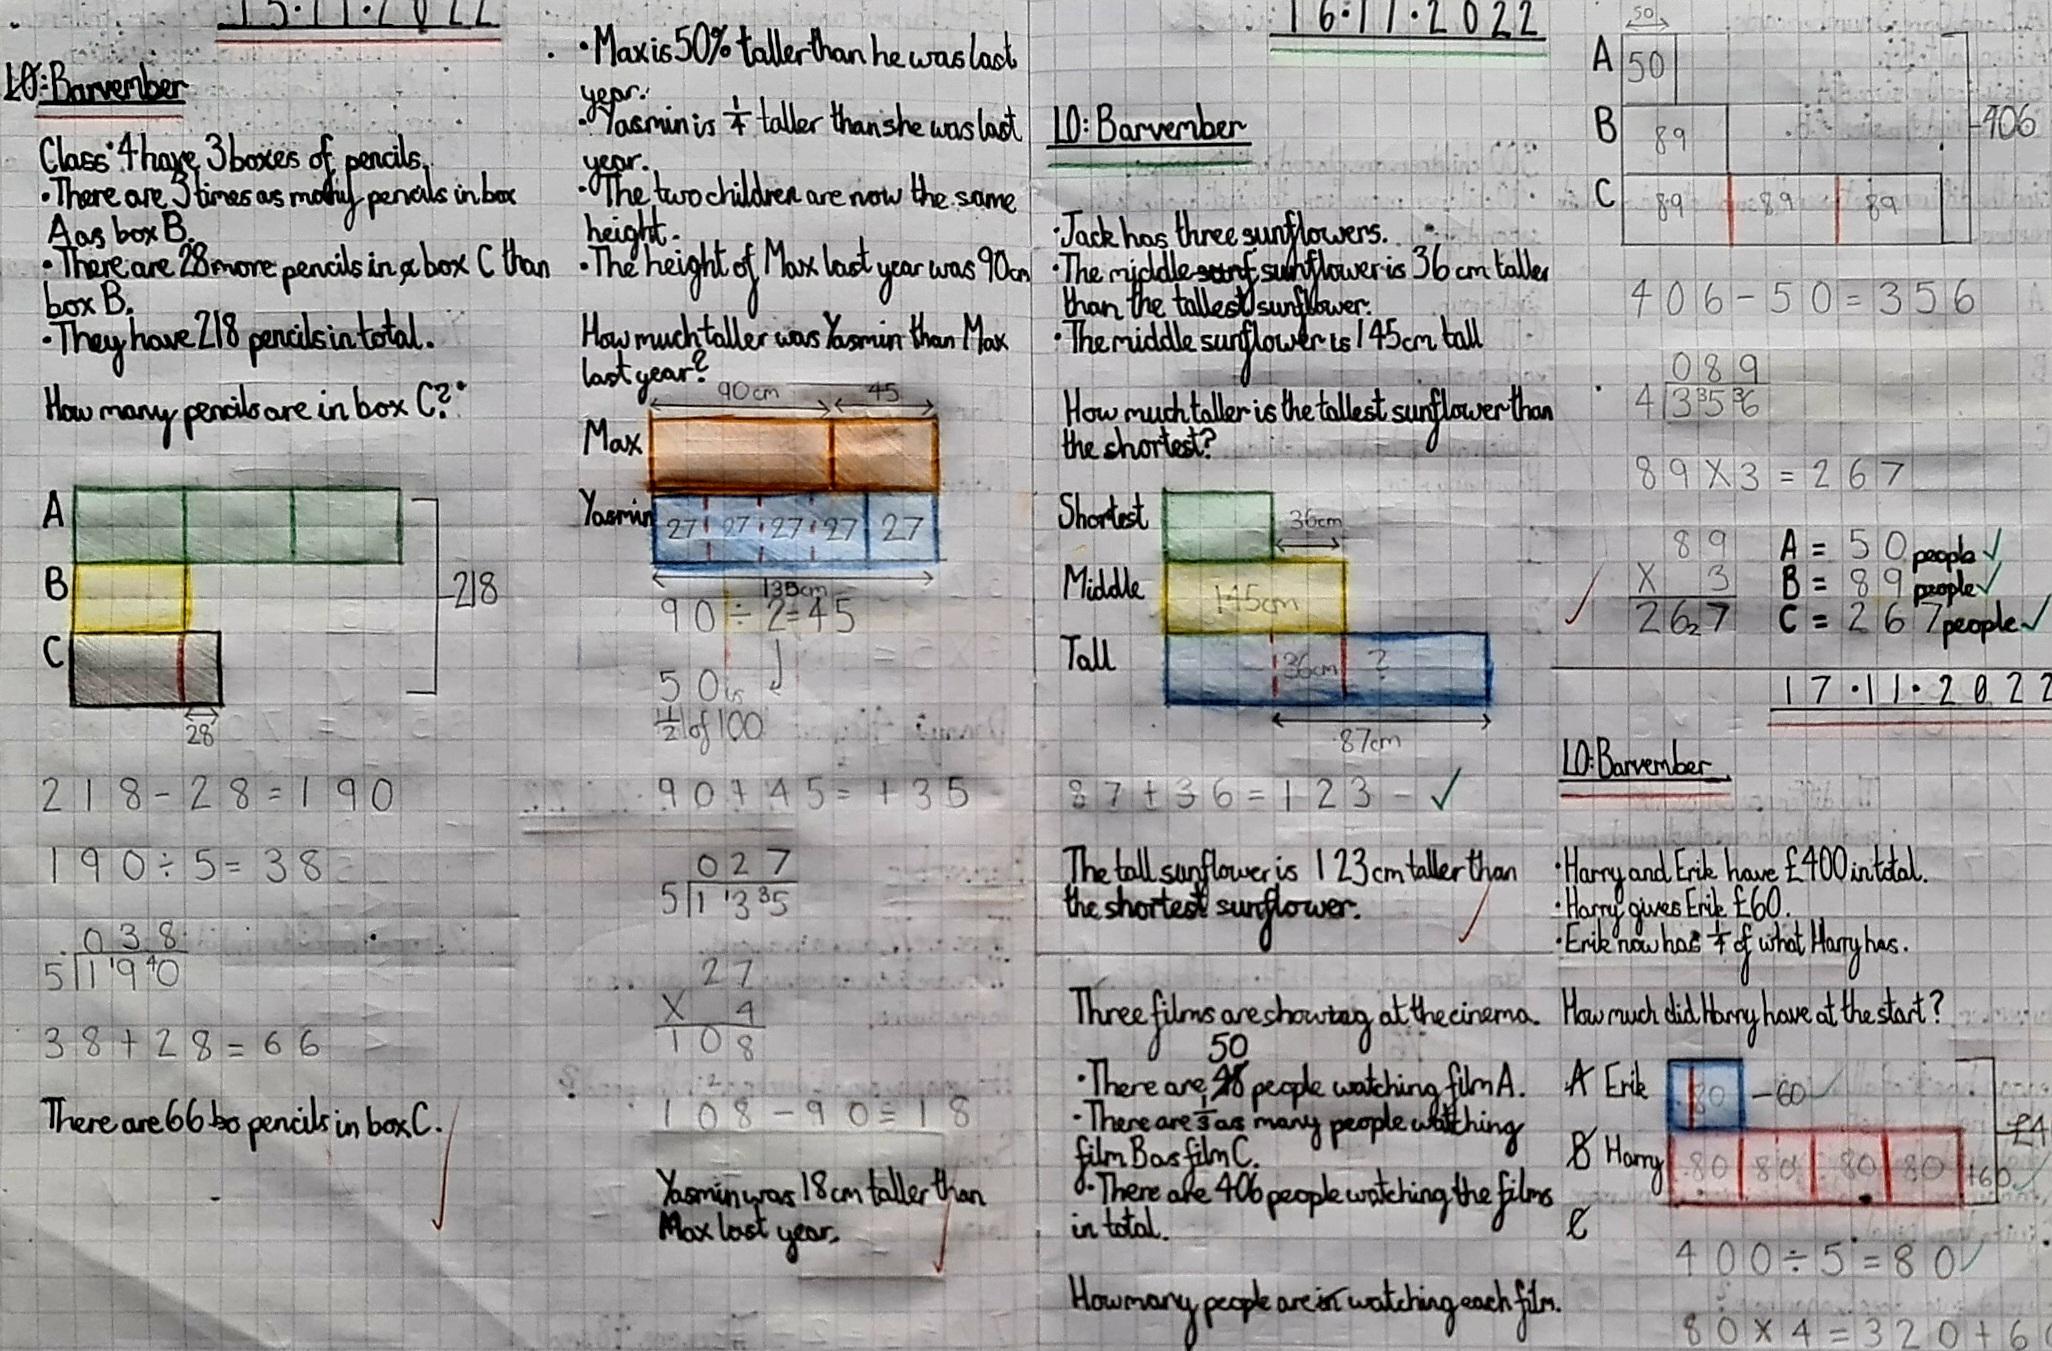 15.11.2022
LO: Barvember
Class 4 have 3 boxes of pencils.
• There are 3 times as many pencils in box
A as box B.
• There are 28 more pencils in box C than
box B.
• They have 218 pencils in total.
How many pencils are in box C?
A
B
C
218
28
218 - 28 = 190
190 ÷ 5 = 38
038
5 1 ¹9 ⁴0
38 + 28 = 66
There are 66 bo pencils in box C.
• Max is 50% taller than he was last
year.
• Yasmin is 1/4 taller than she was last
year.
• The two children are now the same
height.
• The height of Max last year was 90cm
How much taller was Yasmin than Max
last year?
90cm 45
Max
Yasmin 27 27 27 27 27
135cm
90 ÷ 2 = 45
50 is
1/2 of 100
90 + 45 = 135
027
5 1 ¹3 ³5
27
X 4
108
108 - 90 = 18
Yasmin was 18cm taller than
Max last year.
16.11.2022
LO: Barvember
• Jack has three sunflowers.
• The middle sunflower is 36 cm taller
than the tallest sunflower.
• The middle sunflower is 145cm tall
How much taller is the tallest sunflower than
the shortest?
Shortest 36cm
Middle 145cm
Tall 36cm ?
87cm
87 + 36 = 123
The tall sunflower is 123cm taller than
the shortest sunflower.
Three films are showing at the cinema.
50
• There are people watching film A.
• There are 1/3 as many people watching
film B as film C.
• There are 406 people watching the films
in total.
How many people are watching each film.
50
A 50
B 89
C 89 89 89
406
406 - 50 = 356
089
4 3 ³5 ³6
89 X 3 = 267
89
X 3
26₂7
A = 50 people
B = 89 people
C = 267 people
17.11.2022
LO: Barvember
• Harry and Erik have £400 in total.
• Harry gives Erik £60.
• Erik now has 1/4 of what Harry has.
How much did Harry have at the start?
A Erik 80 -60
B Harry 80 80 80 80 +60
C
£4
400 ÷ 5 = 80
80 x 4 = 320 + 60